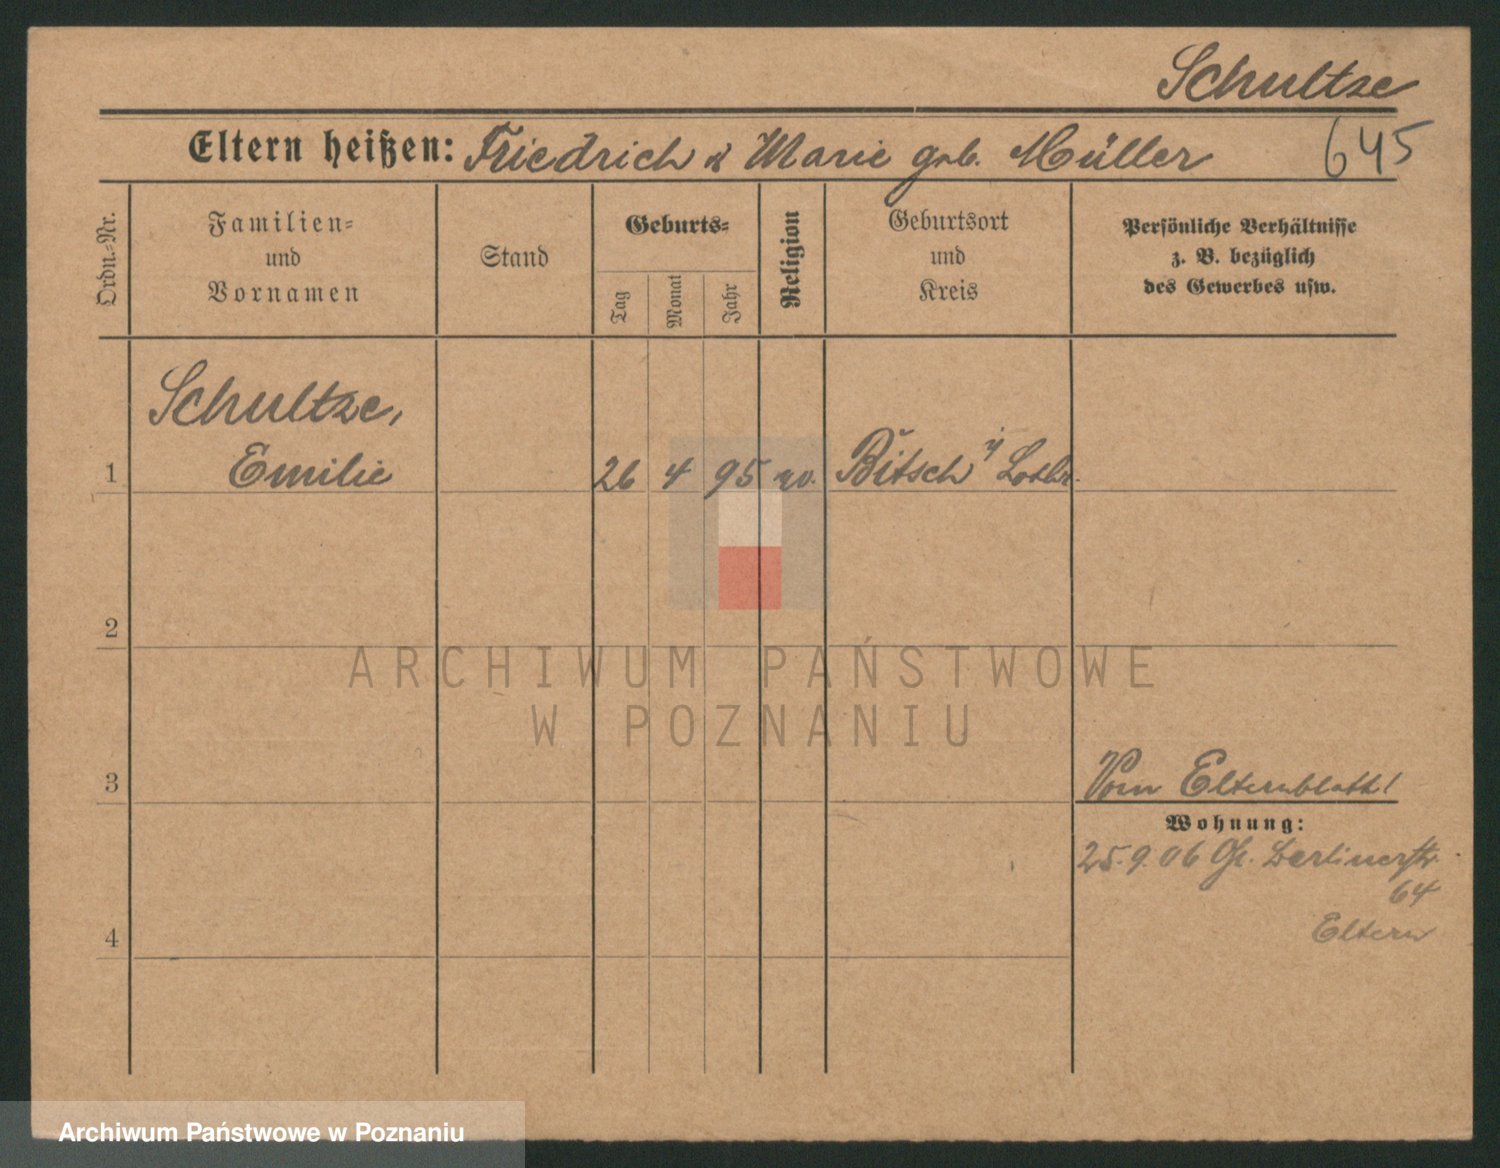 Schultze
645
Eltern heißen: Friedrich & Marie geb. Müller
Ordn.-Nr.
Familien-
und
Vornamen
Stand
Geburts-
Tag
Monat
Jahr
Religion
Geburtsort
und
Kreis
Persönliche Verhältnisse
z. B. bezüglich
des Gewerbes usw.
Schultze,
1 Emilie 26 4 95 ev. Bitsch i/ Lothr.
2
ARCHIWUM PAŃSTWOWE
W POZNANIU
3
Vom Elternblatt!
Wohnung:
25.9.06 Gr. Berlinerstr.
64
Eltern
4
Archiwum Państwowe w Poznaniu